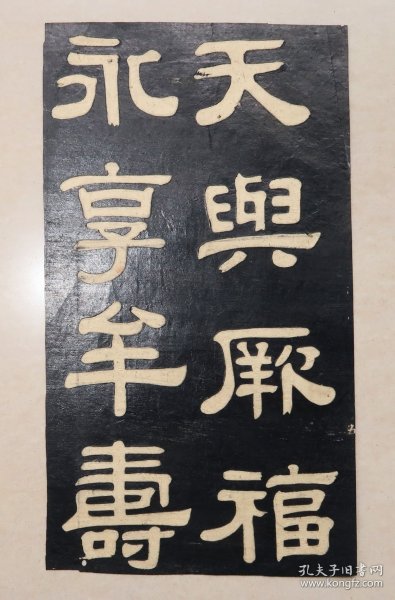 天與厥福
永享牟壽
孔夫子旧书网
www.kongfz.com